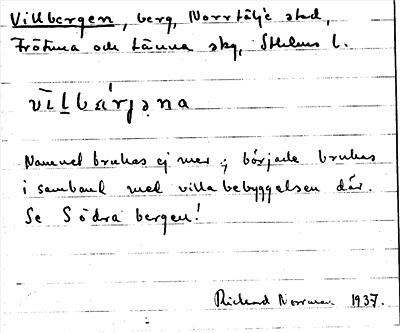 Villbergen, berg, Norrtälje stad,
Frötuna och Länna skg, Sthlms l.
vìlbárjəna
Namnet brukas ej mer; började brukas
i samband med villabebyggelsen där.
Se Södra bergen!
Rickard Norrman 1937.